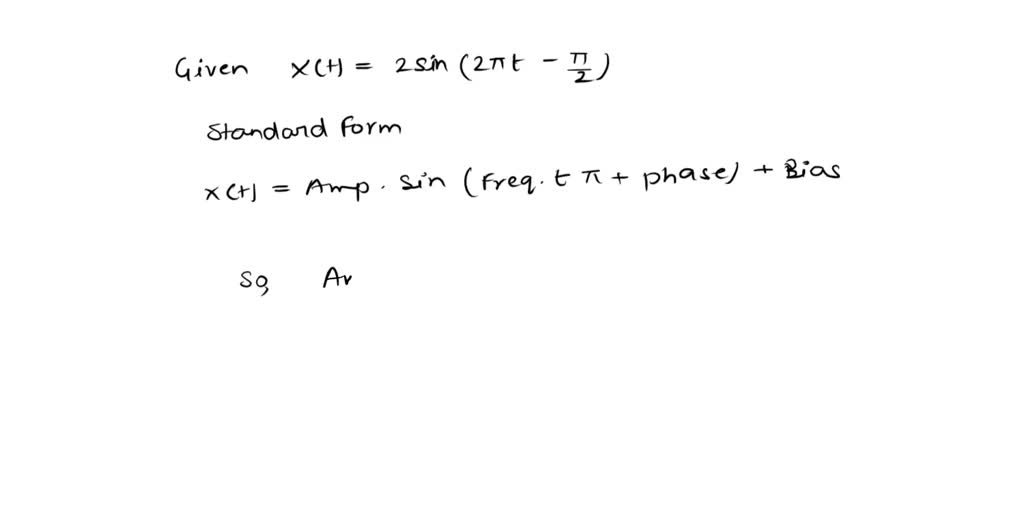 Given x(t) = 2 sin (2πt - π/2)
Standard form
x(t) = Amp . sin (Freq. t π + phase) + Bias
So, Av